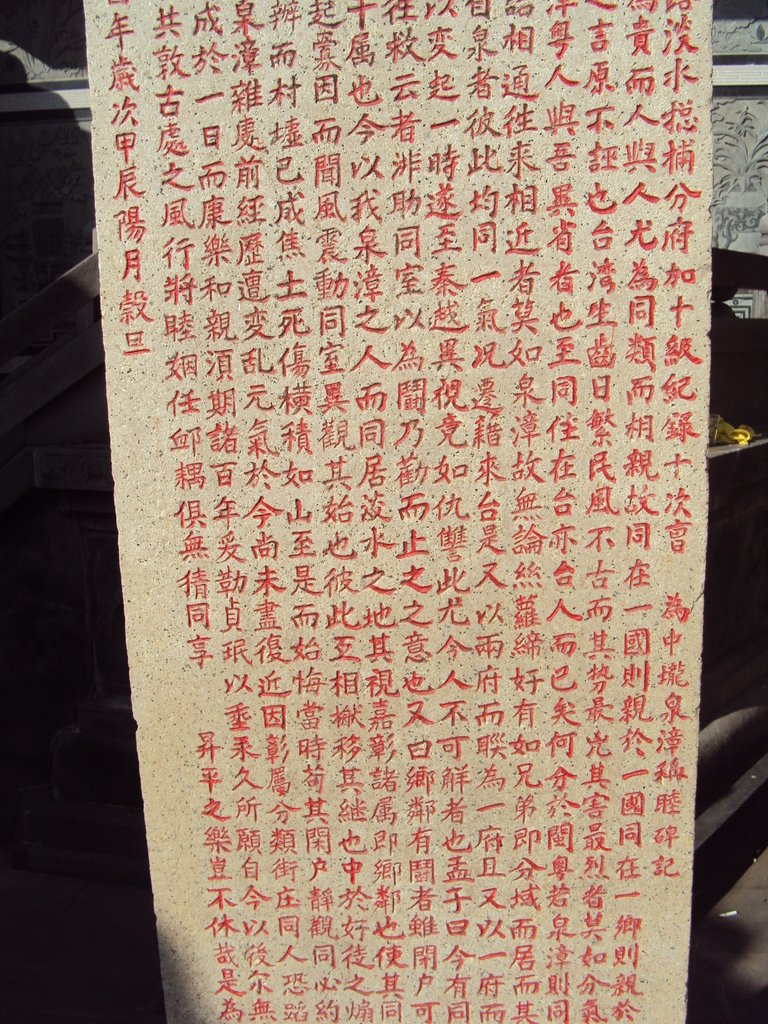 淡水揔捕分府加十級紀錄十次曹　為中壠泉漳稱睦碑記
為貴而人與人尤為同類而相親故同在一國則親於一國同在一鄉則親於
之言原不誣也台湾生齒日繁民風不古而其势最兇其害最烈者莫如分氣
漳粤人與吾異省者也至同住在台亦台人而已矣何分於閩粤若泉漳則同
語相通徃来相近者莫如泉漳故無論絲蘿締好有如兄弟即分域而居而其
有泉者彼此均同一氣况遷籍來台是又以兩府而聨為一府且又以一府而
以变起一時遂至秦越異視竟如仇讐此尤今人不可解者也孟子曰今有同
往救云者非助同室以為鬪乃勸而止之之意也又曰鄉鄰有鬪者雖閉户可
十属也今以我泉漳之人而同居淡水之地其視嘉彰諸属即鄉鄰也使其同
起寡因而聞風震動同室異觀其始也彼此互相撇移其継也中於奸徒之煽
辨而村墟已成焦土死傷横積如山至是而始悔當時苟其閉户靜觀同心約
泉漳雜處前經歷遭变乱元氣於今尚未盡復近因彰屬分類街庄同人恐蹈
成於一日而康樂和親湏期諸百年爰勒貞珉以垂永久所願自今以後尔無
共敦古處之風行將睦婣任卹耦俱無猜同享　昇平之樂豈不休哉是為
年歲次甲辰陽月穀旦